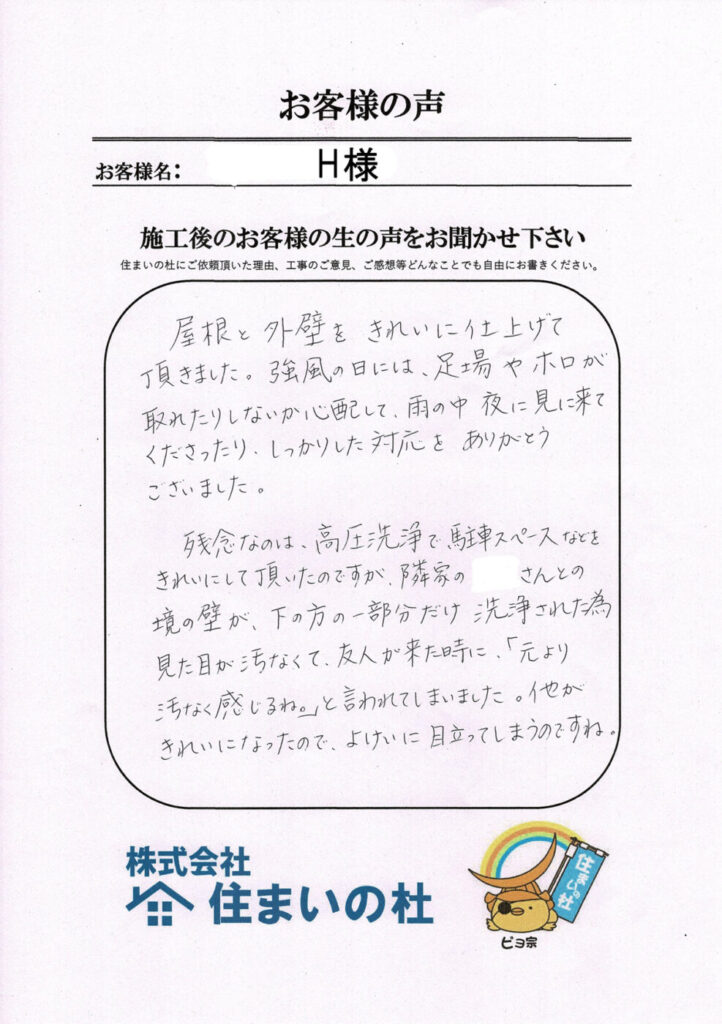 お客様の声
お客様名: H様
施工後のお客様の生の声をお聞かせ下さい
住まいの杜にご依頼頂いた理由、工事のご意見、ご感想等どんなことでも自由にお書きください。
屋根と外壁をきれいに仕上げて
頂きました。強風の日には、足場やホロが
取れたりしないか心配して、雨の中夜に見に来て
くださったり、しっかりした対応をありがとう
ございました。
残念なのは、高圧洗浄で駐車スペースなどを
きれいにして頂いたのですが、隣家の さんとの
境の壁が、下の方の一部分だけ洗浄された為
見た目が汚なくて、友人が来た時に、「元より
汚なく感じるね。」と言われてしまいました。他が
きれいになったので、よけいに目立ってしまうのですね。
株式会社
住まいの杜
住まいの杜
ピヨ宗